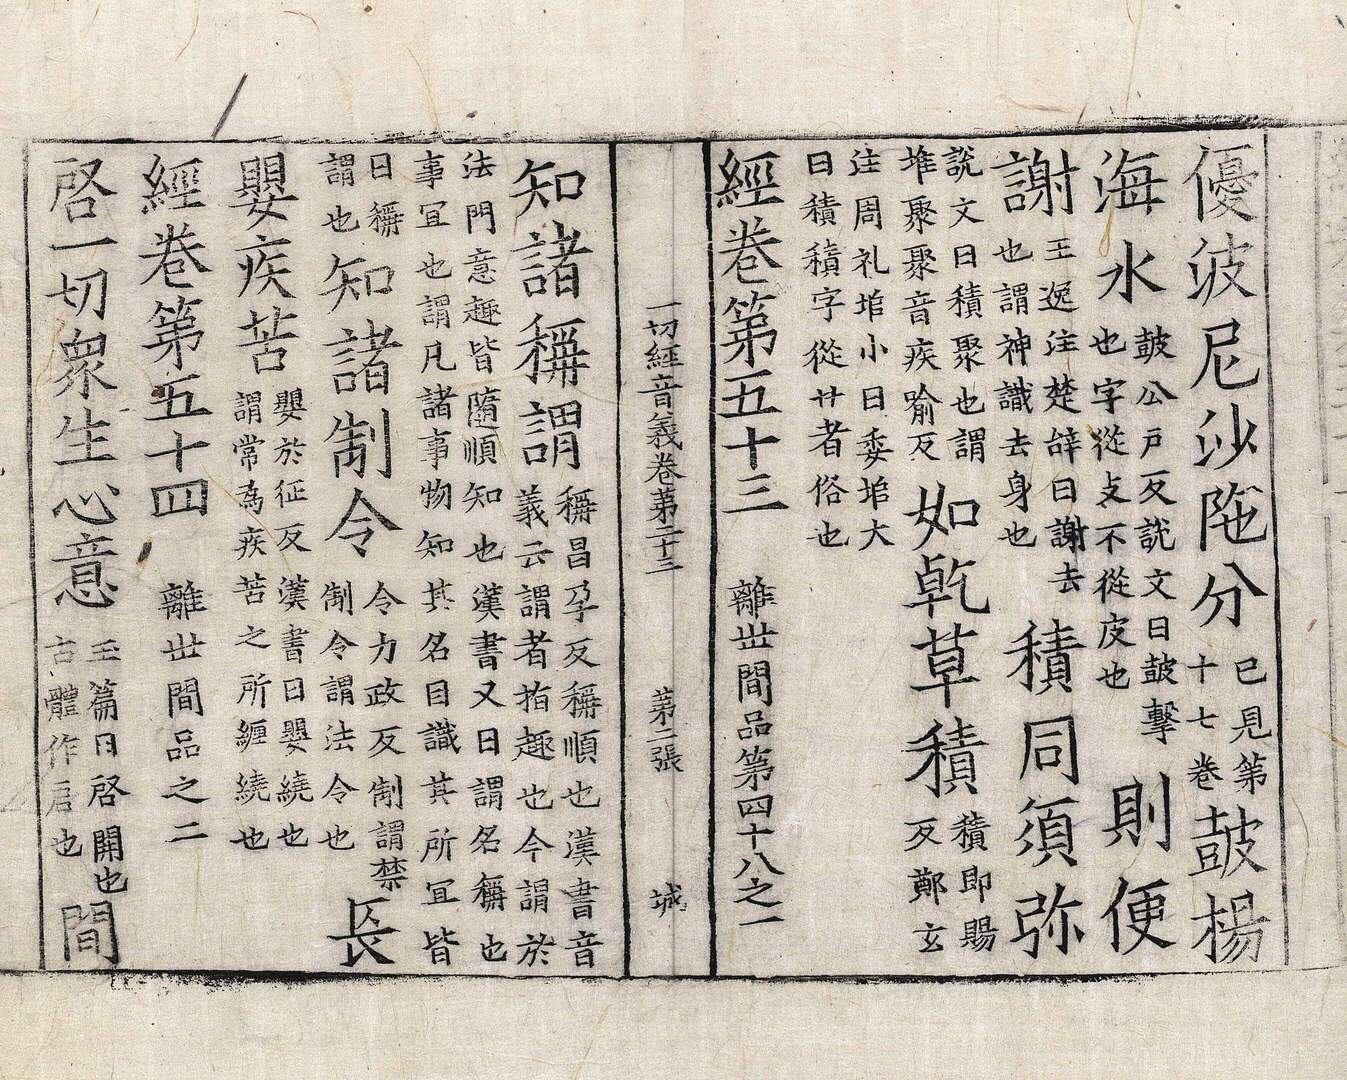 優波尼沙陁分已見第十七卷皷揚
海水皷公戶反說文曰皷擊也字從攴不從皮也則便
謝王逸注楚辞曰謝去也謂神識去身也積同須弥
說文曰積聚也謂堆聚聚音疾喻反如乾草積積即賜反鄭玄
注周礼垖小曰委垖大曰積積字從廾者俗也
經卷第五十三 離世間品第四十八之一
一切經音義卷第二十三 第二張 城
知諸稱謂稱昌孕反稱順也漢書音義云謂者指趣也今謂於
法門意趣皆隨順知也漢書又曰謂名稱也事冝也謂凡諸事物知其名目識其所冝皆
曰稱謂也知諸制令令力政反制謂禁制令謂法令也長
嬰疾苦嬰於征反漢書曰嬰繞也謂常為疾苦之所纏繞也
經卷第五十四 離世間品之二
啓一切衆生心意玉篇曰啓開也古體作启也間